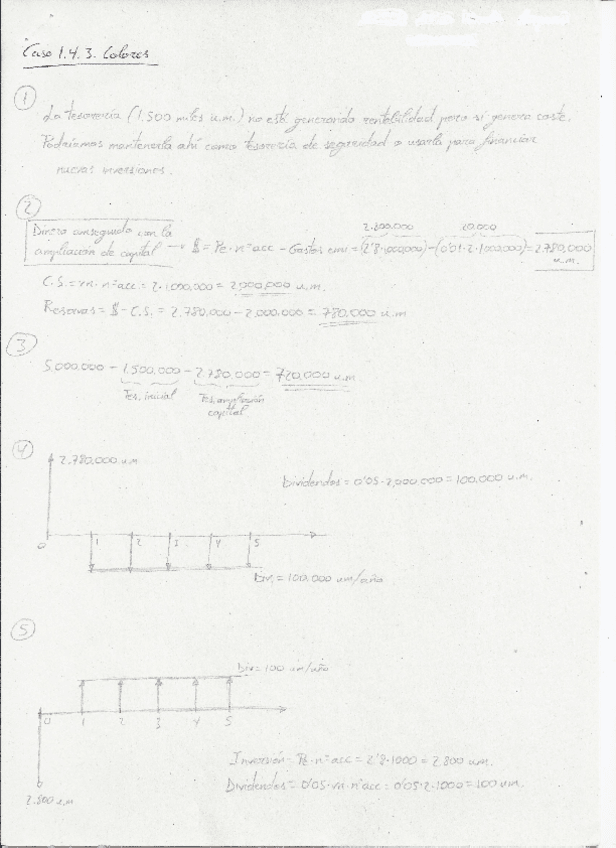 Caso 1.4.3. Colores
1
La tesorería (1.500 miles u.m.) no está generando rentabilidad pero si genera coste.
Podríamos mantenerla ahí como tesorería de seguridad o usarla para financiar
nuevas inversiones.
2
Dinero conseguido con la
ampliación de capital → $ = Pe · nº acc - Gastos emi = (2'8·1000000) - (0'01·2·1000000) = 2.780.000 u.m.
20.000
C.S. = vn · nº acc = 2 · 1.000.000 = 2.000.000 u.m.
Reservas = $ - C.S. = 2.780.000 - 2.000.000 = 780.000 u.m
3
5.000.000 - 1.500.000 - 2.780.000 = 720.000 u.m
Tes. inicial Tes. ampliación
capital
4
2.780.000 u.m
Dividendos = 0'05 · 2.000.000 = 100.000 u.m.
0 1 2 3 4 5
Div = 100.000 um/año
5
Div = 100 um/año
0 1 2 3 4 5
Inversión = Pe · nº acc = 2'8 · 1000 = 2.800 um.
Dividendos = 0'05 · vn · nº acc = 0'05 · 2 · 1000 = 100 um.
2.800 u.m